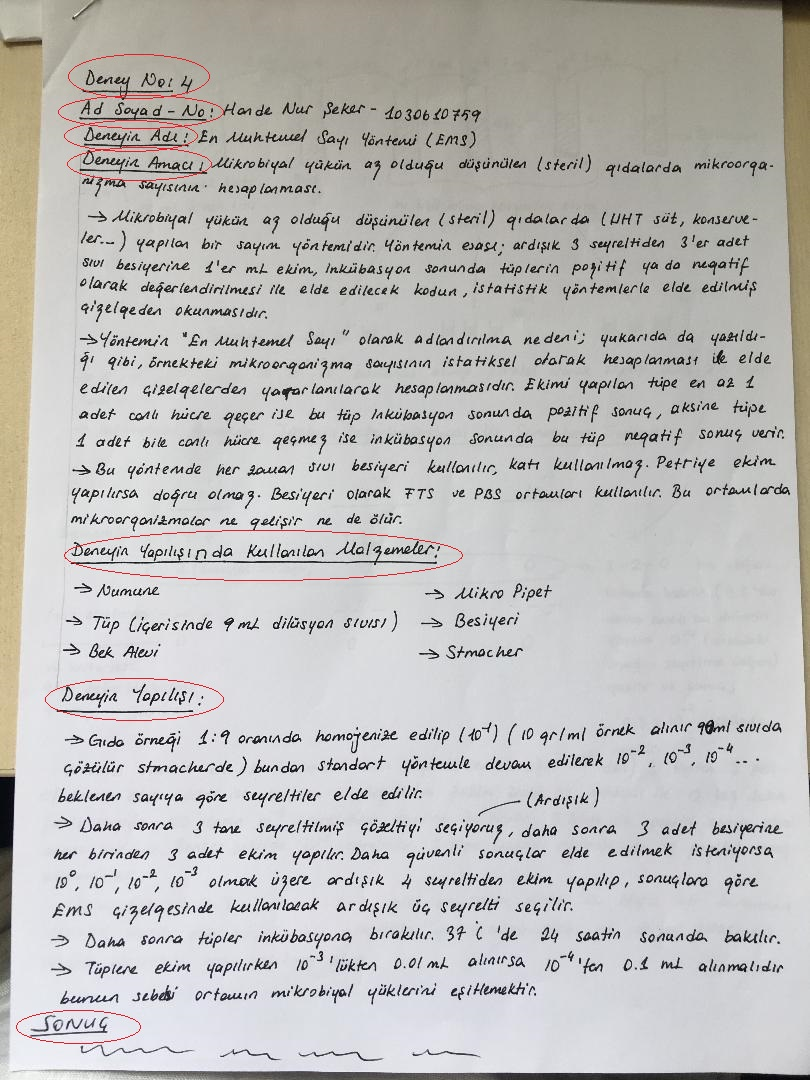 Deney No: 4
Ad Soyad - No: Hande Nur Şeker - 1030610759
Deneyin Adı: En Muhtemel Sayı Yöntemi (EMS)
Deneyin Amacı: Mikrobiyal yükün az olduğu düşünülen (steril) gıdalarda mikroorga-
nizma sayısının hesaplanması.
→ Mikrobiyal yükün az olduğu düşünülen (steril) gıdalarda (UHT süt, konserve-
ler...) yapılan bir sayım yöntemidir. Yöntemin esası; ardışık 3 seyreltiden 3'er adet
sıvı besiyerine 1'er mL ekim, İnkübasyon sonunda tüplerin pozitif ya da negatif
olarak değerlendirilmesi ile elde edilecek kodun, istatistik yöntemlerle elde edilmiş
çizelgeden okunmasıdır.
→ Yöntemin "En Muhtemel Sayı" olarak adlandırılma nedeni; yukarıda da yazıldı-
ğı gibi, örnekteki mikroorganizma sayısının istatiksel olarak hesaplanması ile elde
edilen çizelgelerden yararlanılarak hesaplanmasıdır. Ekimi yapılan tüpe en az 1
adet canlı hücre geçer ise bu tüp İnkübasyon sonunda pozitif sonuç, aksine tüpe
1 adet bile canlı hücre geçmez ise inkübasyon sonunda bu tüp negatif sonuç verir.
→ Bu yöntemde her zaman sıvı besiyeri kullanılır, katı kullanılmaz. Petriye ekim
yapılırsa doğru olmaz. Besiyeri olarak FTS ve PBS ortamları kullanılır. Bu ortamlarda
mikroorganizmalar ne gelişir ne de ölür.
Deneyin Yapılışında Kullanılan Malzemeler:
→ Numune
→ Tüp (içerisinde 9 mL dilüsyon sıvısı)
→ Bek Alevi
→ Mikro Pipet
→ Besiyeri
→ Stmacher
Deneyin Yapılışı:
→ Gıda örneği 1:9 oranında homojenize edilip (10⁻¹) (10 gr/ml örnek alınır 90ml sıvıda
çözülür stmacherde) bundan standart yöntemle devam edilerek 10⁻², 10⁻³, 10⁻⁴...
beklenen sayıya göre seyreltiler elde edilir.
(Ardışık)
→ Daha sonra 3 tane seyreltilmiş çözeltiyi seçiyoruz, daha sonra 3 adet besiyerine
her birinden 3 adet ekim yapılır. Daha güvenli sonuçlar elde edilmek isteniyorsa
10⁰, 10⁻¹, 10⁻², 10⁻³ olmak üzere ardışık 4 seyreltiden ekim yapılıp, sonuçlara göre
EMS çizelgesinde kullanılacak ardışık üç seyrelti seçilir.
→ Daha sonra tüpler inkübasyona bırakılır. 37°C'de 24 saatin sonunda bakılır.
→ Tüplere ekim yapılırken 10⁻³'lükten 0.01 mL alınırsa 10⁻⁴'ten 0.1 mL alınmalıdır
bunun sebebi ortamın mikrobiyal yüklerini eşitlemektir.
SONUÇ